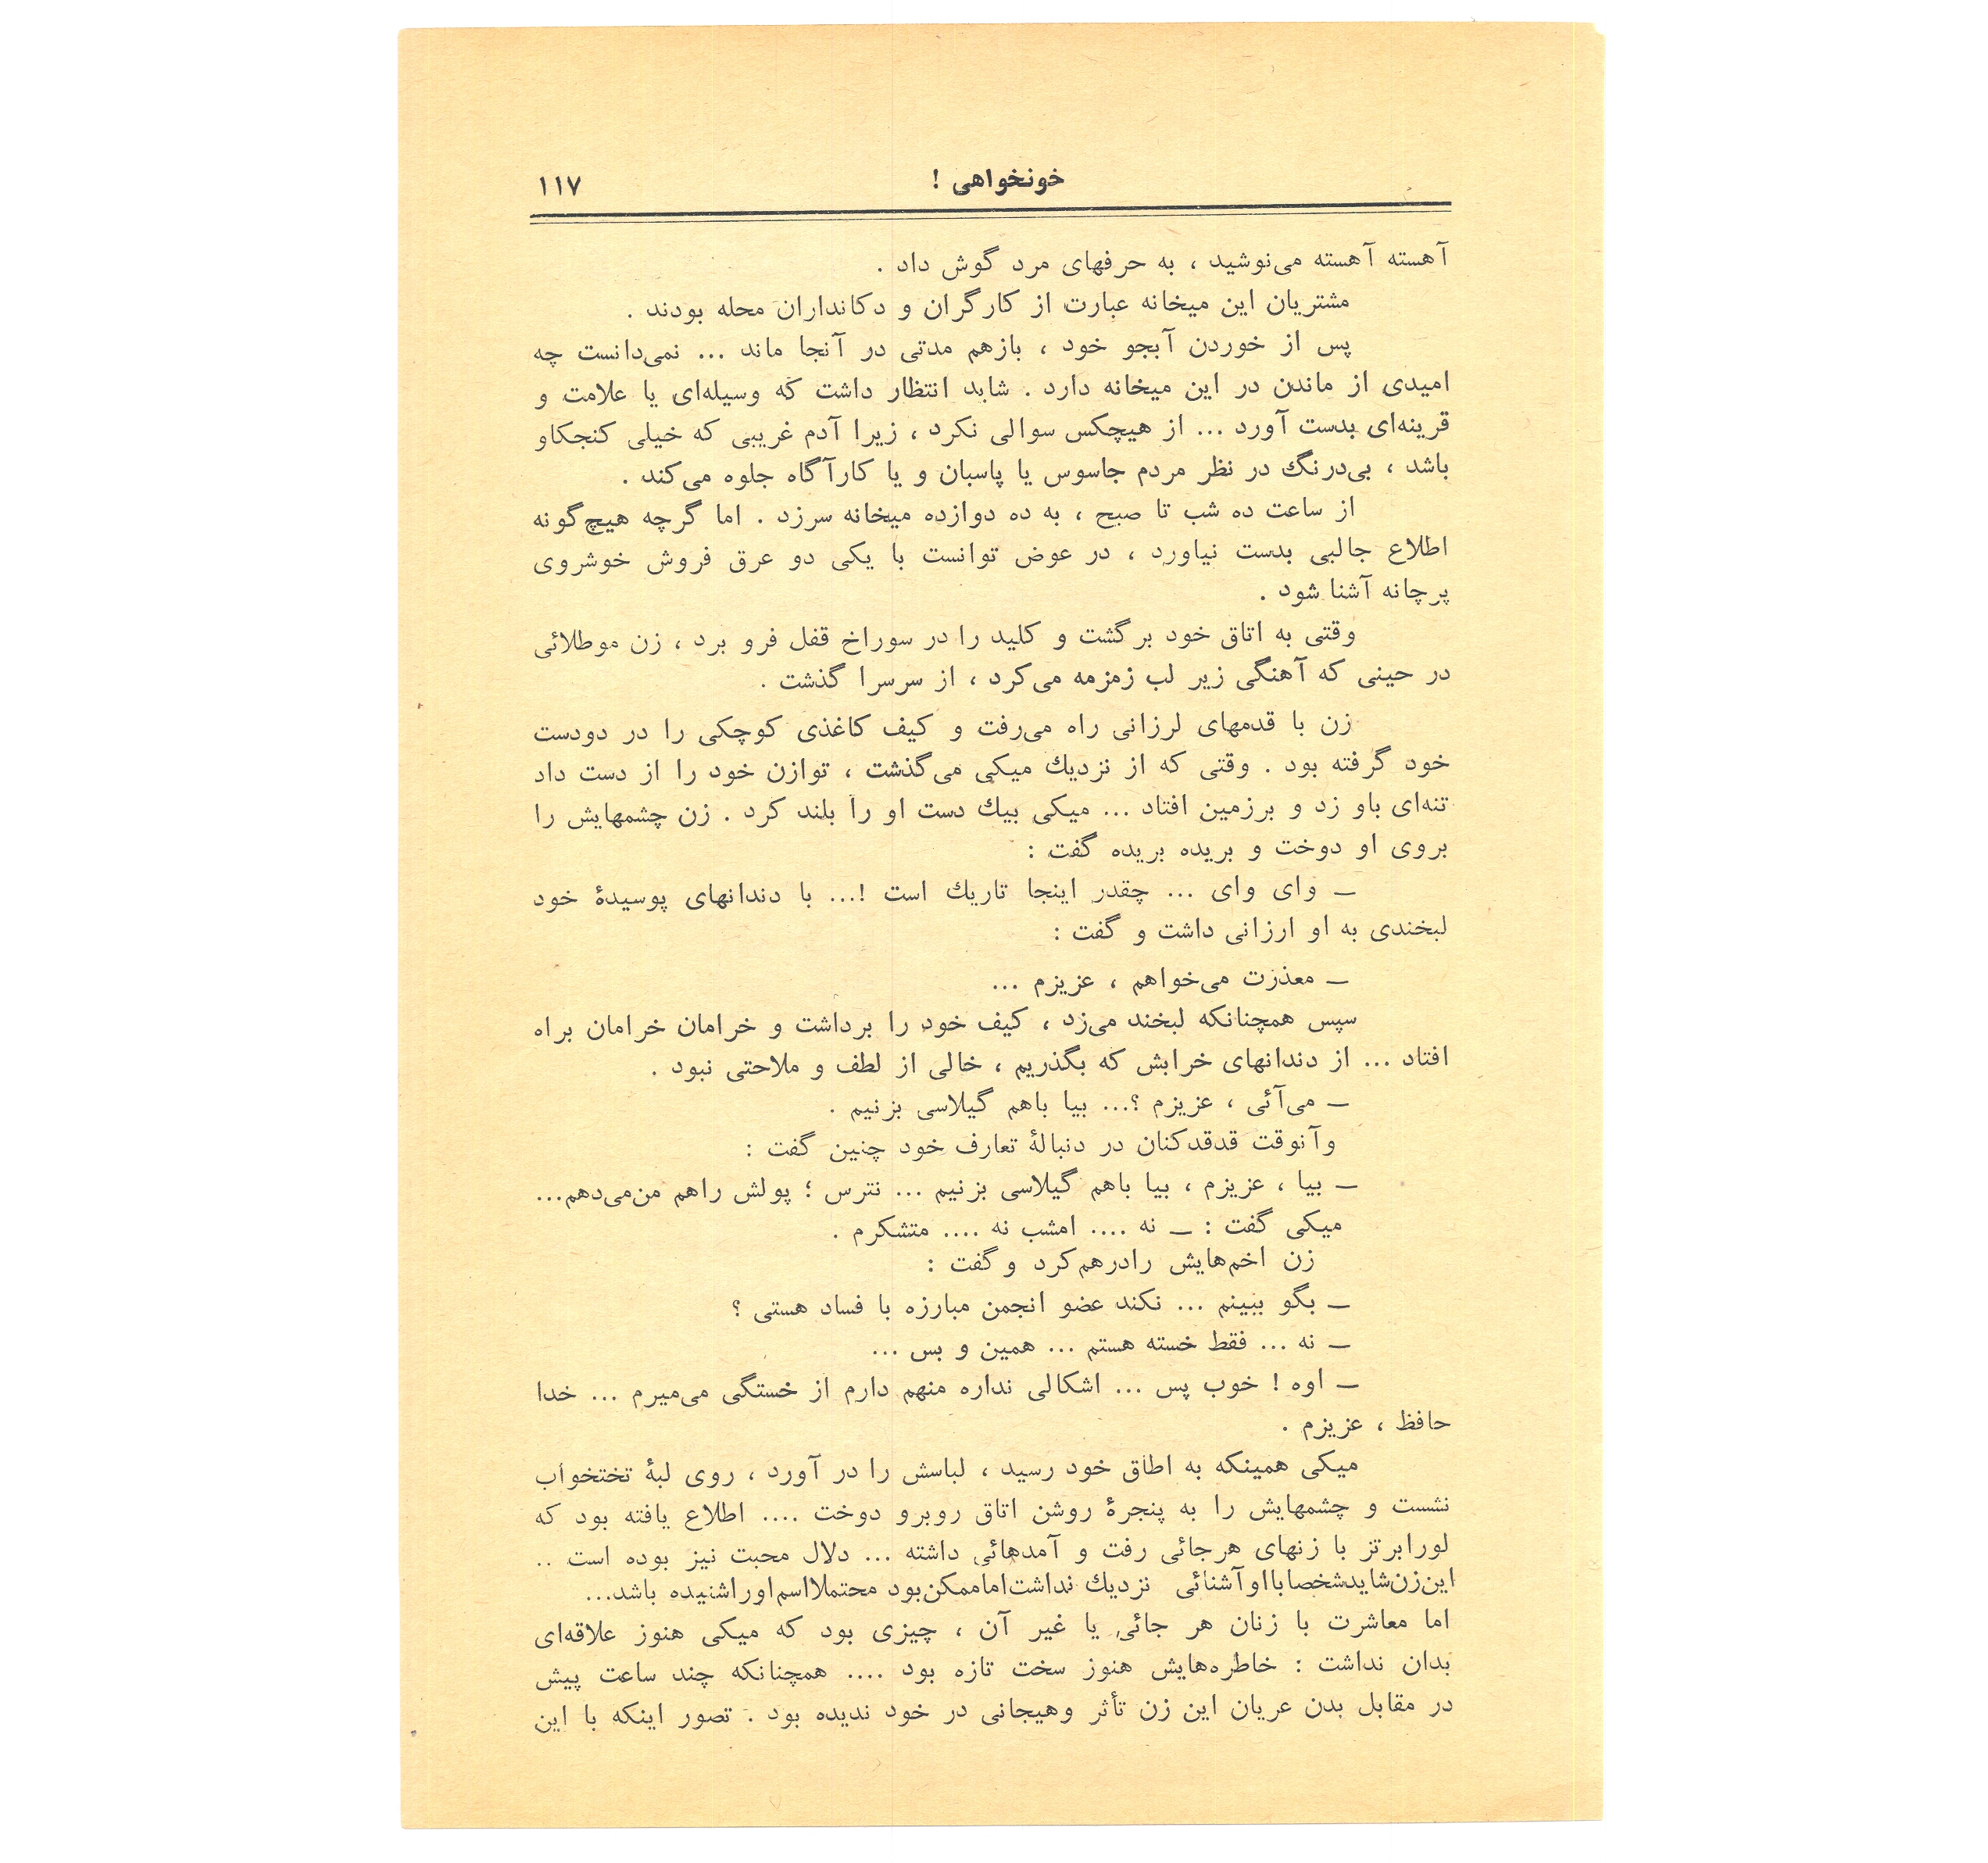 خونخواهی !
۱۱۷
آهسته آهسته می‌نوشید ، به حرفهای مرد گوش داد .
مشتریان این میخانه عبارت از کارگران و دکانداران محله بودند .
پس از خوردن آبجو خود ، بازهم مدتی در آنجا ماند ... نمی‌دانست چه
امیدی از ماندن در این میخانه دارد . شاید انتظار داشت که وسیله‌ای یا علامت و
قرینه‌ای بدست آورد ... از هیچکس سوالی نکرد ، زیرا آدم غریبی که خیلی کنجکاو
باشد ، بی‌درنگ در نظر مردم جاسوس یا پاسبان و یا کارآگاه جلوه می‌کند .
از ساعت ده شب تا صبح ، به ده دوازده میخانه سرزد . اما گرچه هیچ‌گونه
اطلاع جالبی بدست نیاورد ، در عوض توانست با یکی دو عرق فروش خوشروی
پرچانه آشنا شود .
وقتی به اتاق خود برگشت و کلید را در سوراخ قفل فرو برد ، زن موطلائی
در حینی که آهنگی زیر لب زمزمه می‌کرد ، از سرسرا گذشت .
زن با قدمهای لرزانی راه می‌رفت و کیف کاغذی کوچکی را در دودست
خود گرفته بود . وقتی که از نزدیك میکی می‌گذشت ، توازن خود را از دست داد
تنه‌ای باو زد و برزمین افتاد ... میکی بیك دست او را بلند کرد . زن چشمهایش را
بروی او دوخت و بریده بریده گفت :
ــ وای وای ... چقدر اینجا تاریك است !... با دندانهای پوسیدهٔ خود
لبخندی به او ارزانی داشت و گفت :
ــ معذرت می‌خواهم ، عزیزم ...
سپس همچنانکه لبخند می‌زد ، کیف خود را برداشت و خرامان خرامان براه
افتاد ... از دندانهای خرابش که بگذریم ، خالی از لطف و ملاحتی نبود .
ــ می‌آئی ، عزیزم ؟... بیا باهم گیلاسی بزنیم .
وآنوقت قدقدکنان در دنبالهٔ تعارف خود چنین گفت :
ــ بیا ، عزیزم ، بیا باهم گیلاسی بزنیم ... نترس ؛ پولش راهم من‌می‌دهم...
میکی گفت : ــ نه .... امشب نه .... متشکرم .
زن اخم‌هایش رادرهم‌کرد وگفت :
ــ بگو ببینم ... نکند عضو انجمن مبارزه با فساد هستی ؟
ــ نه ... فقط خسته هستم ... همین و بس ...
ــ اوه ! خوب پس ... اشکالی نداره منهم دارم از خستگی می‌میرم ... خدا
حافظ ، عزیزم .
میکی همینکه به اطاق خود رسید ، لباسش را در آورد ، روی لبهٔ تختخواب
نشست و چشمهایش را به پنجرهٔ روشن اتاق روبرو دوخت .... اطلاع یافته بود که
لورابرتز با زنهای هرجائی رفت و آمدهائی داشته ... دلال محبت نیز بوده است ..
این‌زن‌شایدشخصابااوآشنائی نزدیك نداشت‌اماممکن‌بود محتملااسم‌اوراشنیده باشد...
اما معاشرت با زنان هر جائی یا غیر آن ، چیزی بود که میکی هنوز علاقه‌ای
بدان نداشت : خاطره‌هایش هنوز سخت تازه بود .... همچنانکه چند ساعت پیش
در مقابل بدن عریان این زن تأثر وهیجانی در خود ندیده بود . تصور اینکه با این